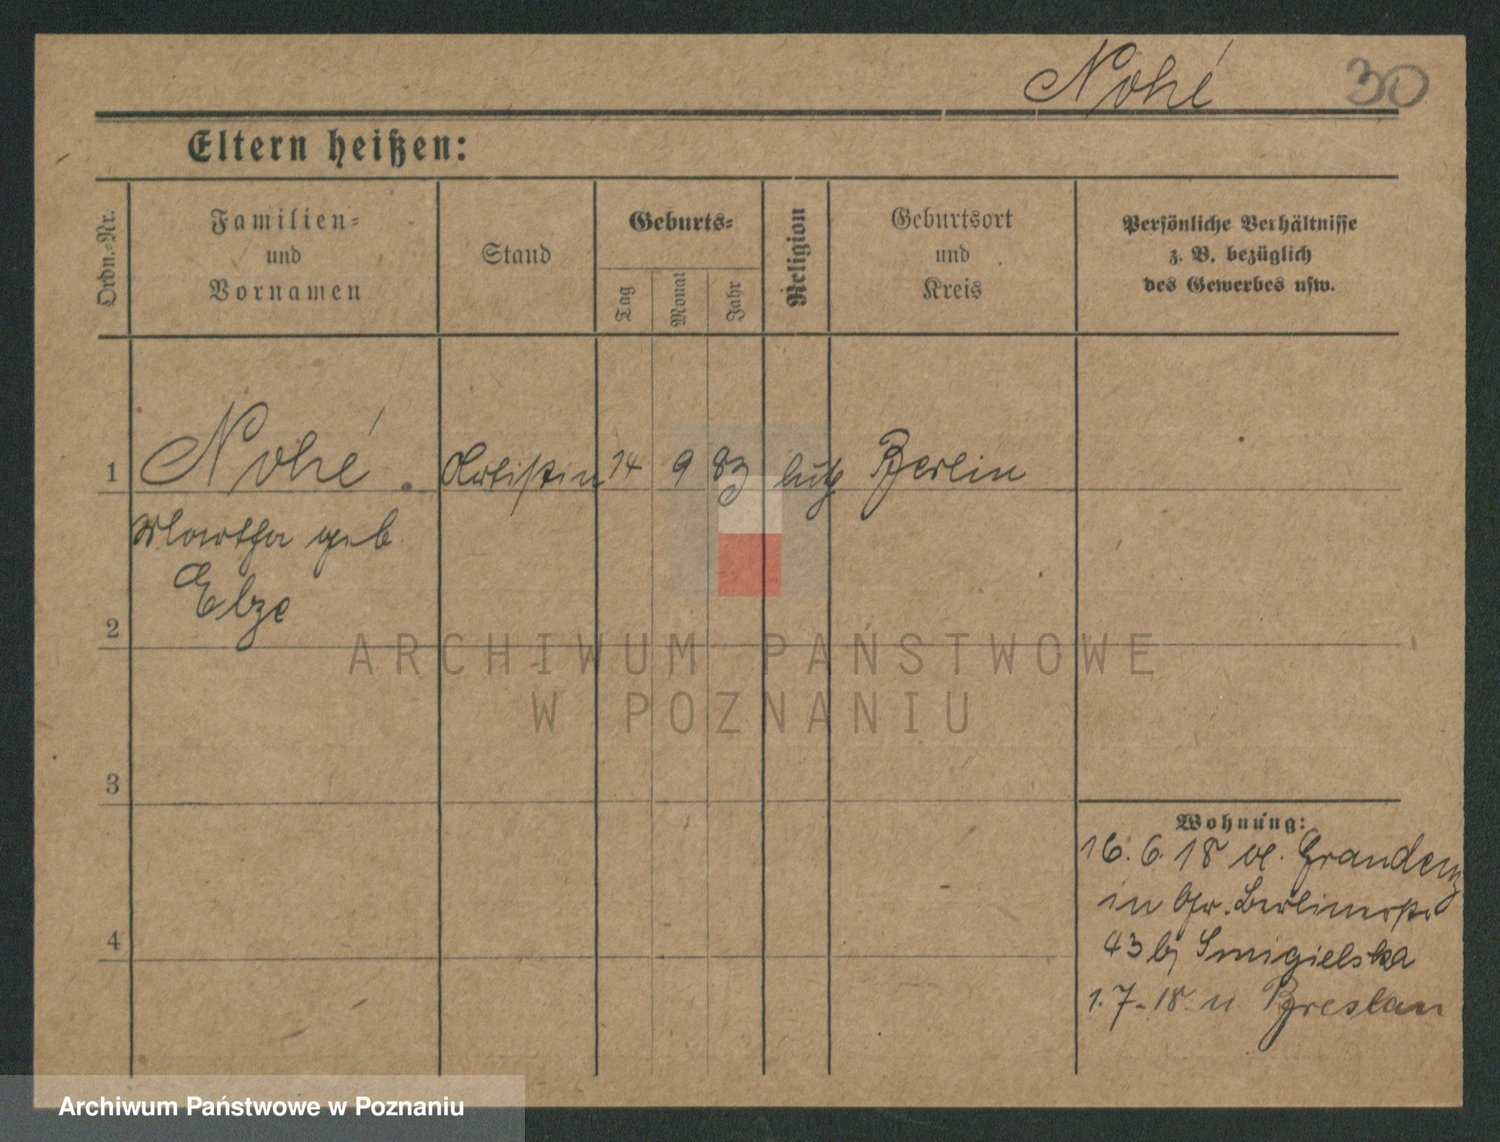 Nohé 30
Eltern heißen:
Ordn.-Nr.
Familien-
und
Vornamen
Stand
Geburts-
Tag
Monat
Jahr
Religion
Geburtsort
und
Kreis
Persönliche Verhältnisse
z. B. bezüglich
des Gewerbes usw.
1 Nohé. Artistin 14 9 83 luth Berlin
Martha geb
Elze
2
ARCHIWUM PAŃSTWOWE
W POZNANIU
3
Wohnung:
16. 6. 18 v. Graudenz
in Gr. Berlinerstr
43 bj Smigielska
4
1. 7. 18 n Breslau
Archiwum Państwowe w Poznaniu